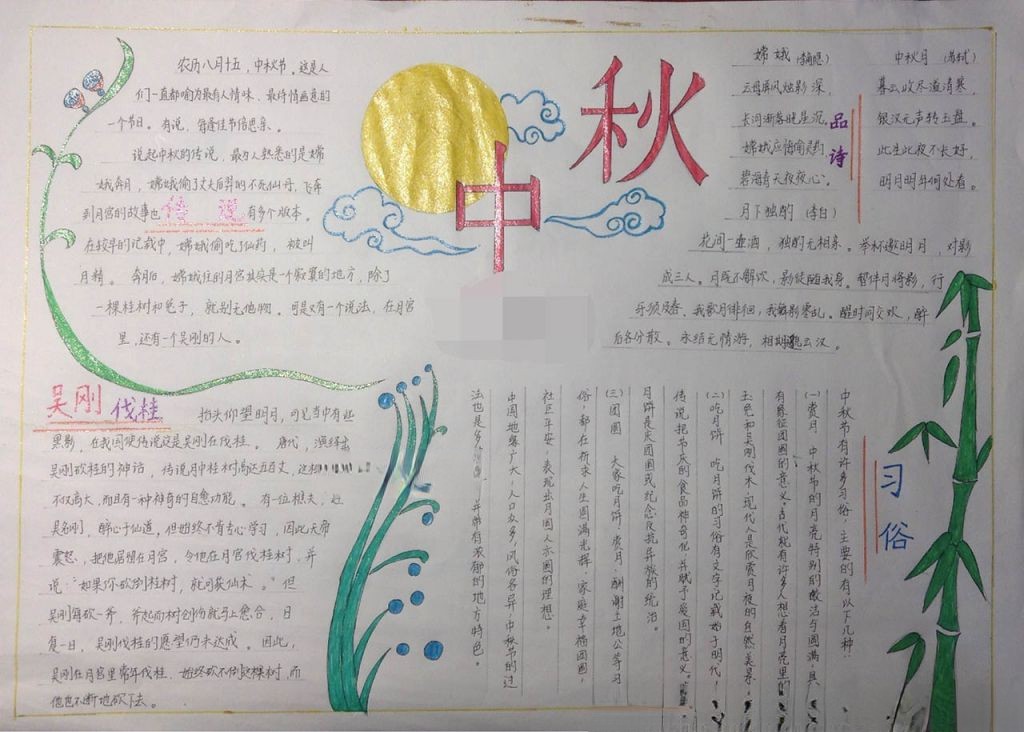 中秋
农历八月十五，中秋节。这是人
们一直都喻为最有人情味、最诗情画意的
一个节日。有说，每逢佳节倍思亲。
说起中秋的传说，最为人熟悉的是嫦
娥奔月，嫦娥偷了丈夫后羿的不死仙丹，飞奔
到月宫的故事也有多个版本。
传说
在较早的记载中，嫦娥偷吃了仙药，被叫
月精。奔月后，嫦娥住的月宫其实是一个寂寞的地方，除了
一棵桂树和兔子，就别无他物。可是又有一个说法，在月宫
里，还有一个吴刚的人。
嫦娥
云母屏风烛影深，
长河渐落晓星沉。
嫦娥应悔偷灵药，
碧海青天夜夜心。
品诗
中秋月（苏轼）
暮云收尽溢清寒，
银汉无声转玉盘。
此生此夜不长好，
明月明年何处看。
月下独酌（李白）
花间一壶酒，独酌无相亲。举杯邀明月，对影
成三人。月既不解饮，影徒随我身。暂伴月将影，行
乐须及春。我歌月徘徊，我舞影零乱。醒时同交欢，醉
后各分散。永结无情游，相期邈云汉。
吴刚伐桂
抬头仰望明月，可见当中有些
黑影，在我国便传说这是吴刚在伐桂。唐代，演绎出
吴刚砍桂的神话，传说月中桂树高达五百丈，这
不仅高大，而且有一种神奇的自愈功能。有一位樵夫，姓
吴名刚，醉心于仙道，但始终不肯专心学习，因此天帝
震怒，把他居留在月宫，令他在月宫伐桂树，并
说："如果你砍倒桂树，就可获仙术。"但
吴刚每砍一斧，斧起而树创伤就马上愈合，日
复一日，吴刚伐桂的愿望仍未达成。因此，
吴刚在月宫里常年伐桂，始终砍不倒这棵树，而
他也不断地砍下去。
习俗
中秋节有许多习俗，主要的有以下几种：
(一)赏月，中秋节的月亮特别的皎洁与圆满，具
有象征团圆的意义。古代就有许多人想看月亮里的
玉兔和吴刚伐木，现代是欣赏月夜的自然美景。
(二)吃月饼 吃月饼的习俗有文字记载始于明代，
传说把节庆的食品神奇化，并赋予爱国的意义。
月饼是庆团圆或纪念反抗异族的统治。
(三)团圆 大家吃月饼、赏月、酬谢土地公等习
俗，都在祈求人生圆满光辉、家庭幸福团圆，
社区平安，表现出月圆人亦圆的理想。
中国地缘广大，人口众多，风俗各异，中秋节的过
法也是多 ，并带有浓郁的地方特色。